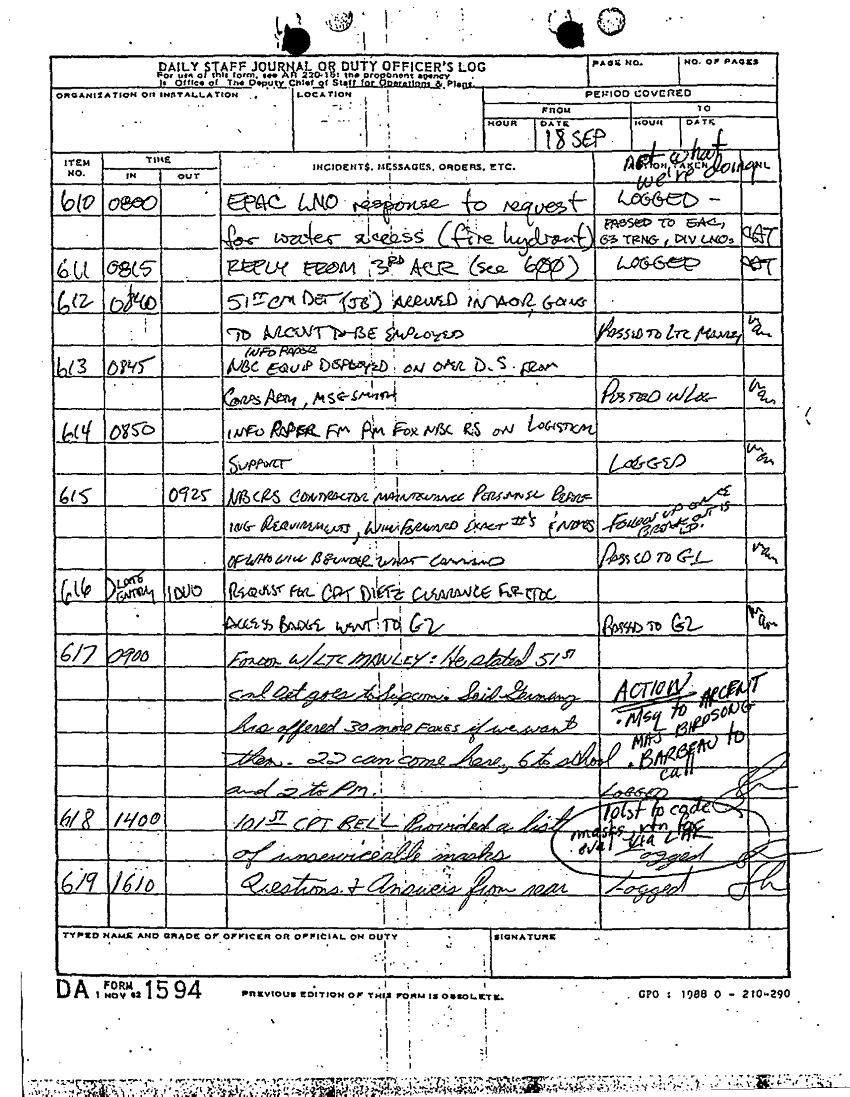 DAILY STAFF JOURNAL OR DUTY OFFICER'S LOG
For use of this form, see AR 220-15; the proponent agency
is Office of The Deputy Chief of Staff for Operations & Plans.
PAGE NO.
NO. OF PAGES
ORGANIZATION OR INSTALLATION
LOCATION
PERIOD COVERED
FROM
TO
HOUR
DATE
HOUR
DATE
18 SEP
ITEM NO.
TIME
IN
OUT
INCIDENTS, MESSAGES, ORDERS, ETC.
ACTION TAKEN
INL
what we're doing
610 0800 EPAC LNO response to request LOGGED -
for water access (fire hydrant) PASSED TO EAC, G3 TRNG, DIV LNOs
611 0815 REPLY FROM 3RD ACR (see 600) LOGGED
612 0840 51ST CM DET (JB) ARRIVED IN AOR, GOING
TO ARCENT TO BE EMPLOYED PASSED TO LTC MANLEY
613 0845 INFO PAPER
NBC EQUIP DEPLOYED ON OPER D.S. FROM
CORPS REAR, MSG SMITH POSTED IN LOG
614 0850 INFO PAPER FM PM FOX NBC RS ON LOGISTICAL
SUPPORT LOGGED
615 0925 NBCRS CONTRACTOR MAINTENANCE PERSONNEL
ING REQUIREMENTS, WILL FORWARD EXACT #'s FOLLOW UP ONCE
OF WHO WILL BE UNDER WHAT COMMAND PASSED TO G1
616 LATE ENTRY 1000 REQUEST FOR CPT DIETZ CLEARANCE FOR
ACCESS BADGE WENT TO G2 PASSED TO G2
617 0900 Forcon w/LTC MANLEY: He stated 51ST
cml det goes to Supcom. Said Germany
has offered 30 more FOXES if we want
them. 22 can come here, 6 to school
and 2 to PM.
ACTION
· Msg to ARCENT
MAJ BIRDSONG
· BARBEAU to
call
Logged
618 1400 101ST CPT BELL Provided a list
of unserviceable masks
101st to
masks
eval via
Logged
619 1610 Questions & Answers from rear Logged
TYPED NAME AND GRADE OF OFFICER OR OFFICIAL ON DUTY
SIGNATURE
DA FORM 1 NOV 62 1594
PREVIOUS EDITION OF THIS FORM IS OBSOLETE.
GPO : 1988 O - 210-290